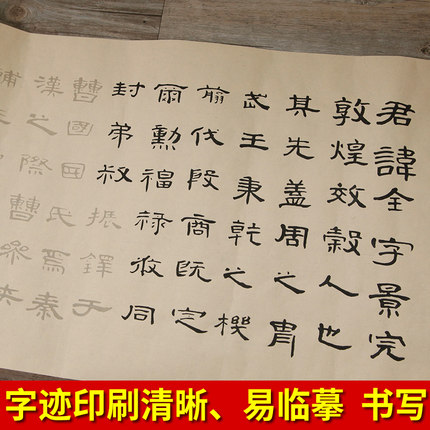 君諱全字景完
敦煌效穀人也
其先盖周之胄
武王秉乾之機
翦伐殷商既定
爾勳福祿攸同
封弟叔振鐸于
曹國因氏焉秦
漢之際曹參夾
字迹印刷清晰、易临摹 书写